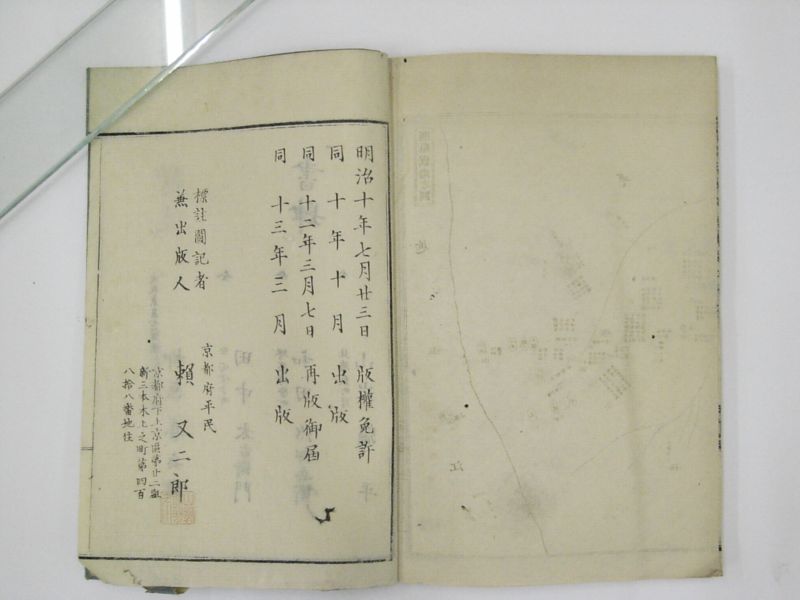 明治十年七月廿三日版權免許
同十年十月出版
同十二年三月七日再版御届
同十三年三月出版
標註圖記者
兼出版人
京都府平民
賴又二郎
京都府下上京區第廿二組
新三本木上之町第四百
八拾八番地住